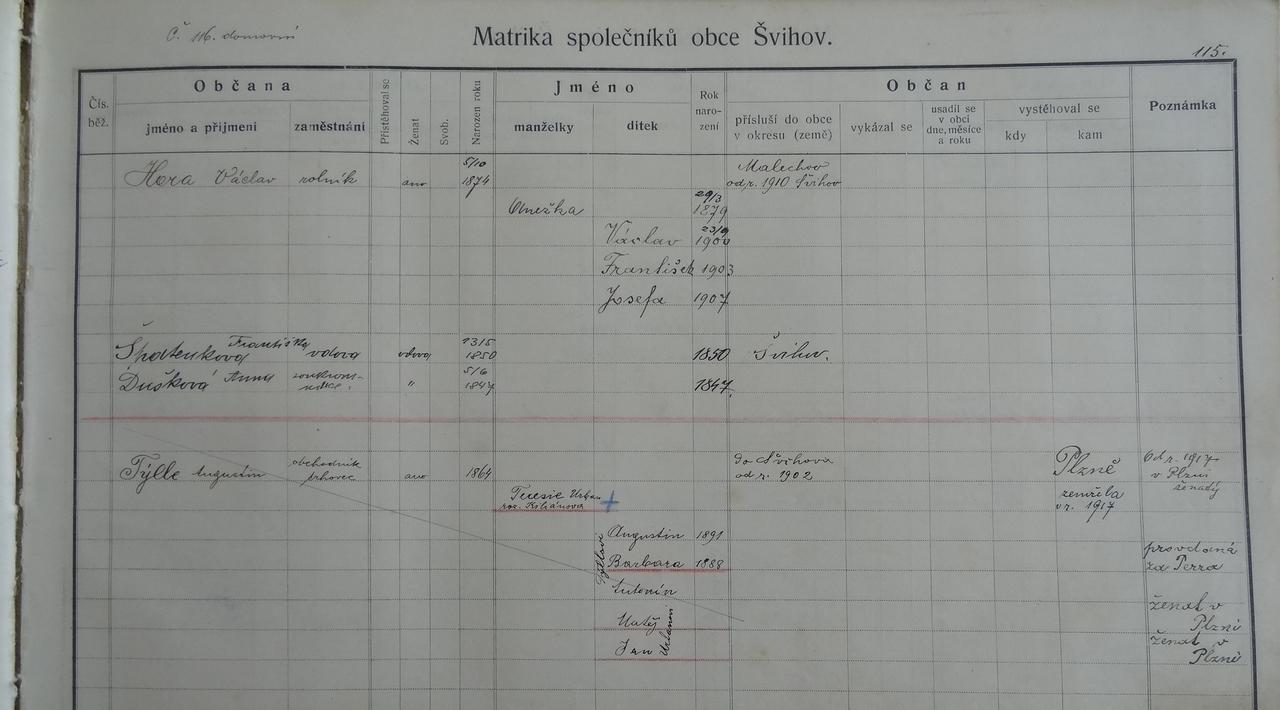 Č. 116. domovní
Matrika společníků obce Švihov.
115.
Čís. běž.
Občana
jméno a příjmení
zaměstnání
Přistěhoval se
Ženat
Svob.
Narozen roku
Jméno
manželky
dítek
Rok naro- zení
Občan
přísluší do obce v okresu (země)
vykázal se
usadil se v obci dne, měsíce a roku
vystěhoval se
kdy
kam
Poznámka
Hora Václav rolník ano 5/10 1874 Malechov od r. 1910 Švihov
Anežka 29/3 1879
Václav 23/9 1900
František 1903
Josefa 1907
Františka vdova vdova 13/5 1850 1850 Švihov.
Dušková Anna " 5/6 1847 1847.
Týlle Augustin obchodník trhovec ano 1864 do Švihova od r. 1902 Plzně Od r. 1917 v Plzni ženatý
Teresie Urban roz. Kiliánova zemřela v r. 1917
Augustin 1891
Barbara 1888 provdaná za Perra
Antonín
Matěj ženat v Plzni
Jan ženat v Plzně